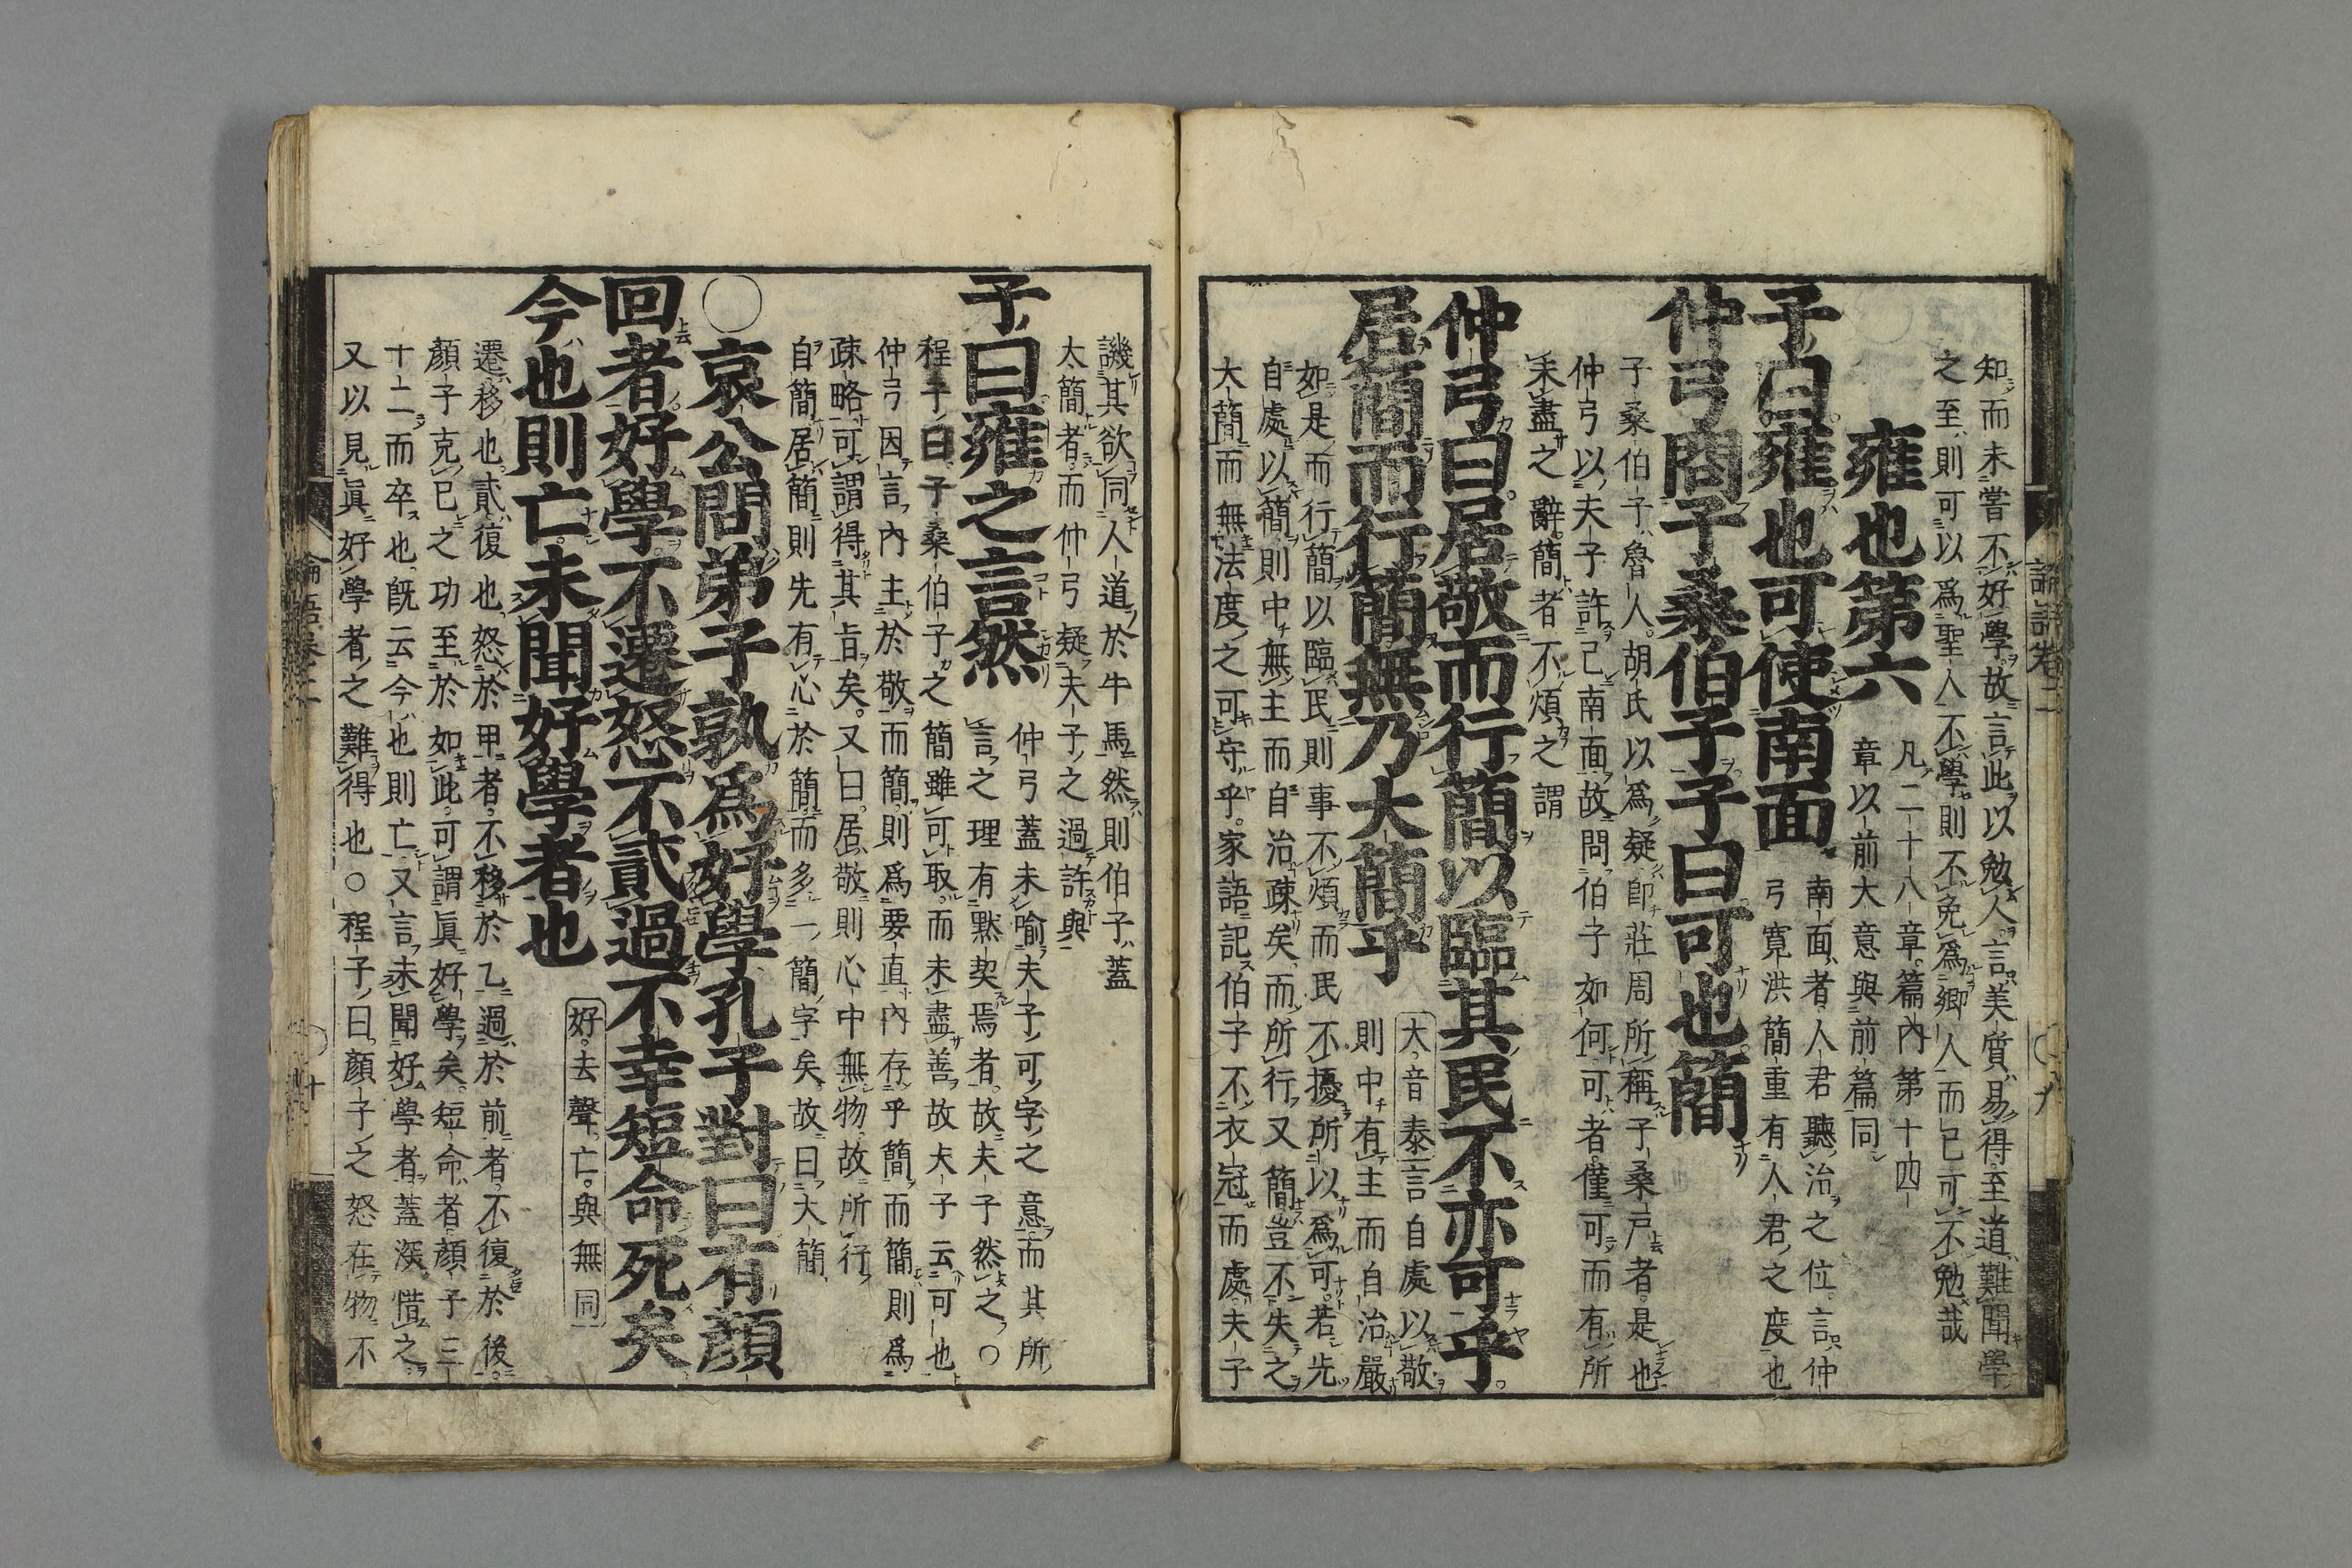 知而未嘗不好學故言此以勉人言美質易得至道難聞學
之至則可以爲聖人不學則不免爲鄕人而已可不勉哉
雍也第六
凡二十八章篇內第十四
章以前大意與前篇同
子曰雍也可使南面
南面者人君聽治之位言仲
弓寬洪簡重有人君之度也
仲弓問子桑伯子子曰可也簡
子桑伯子魯人胡氏以爲疑卽莊周所稱子桑戶者是也
仲弓以夫子許己南面故問伯子如何可者僅可而有所
未盡之辭簡者不煩之謂
仲弓曰居敬而行簡以臨其民不亦可乎
居簡而行簡無乃大簡乎
大音泰言自處以敬
則中有主而自治嚴
如是而行簡以臨民則事不煩而民不擾所以爲可若先
自處以簡則中無主而自治疎矣而所行又簡豈不失之
大簡而無法度之可守乎家語記伯子不衣冠而處夫子
論語卷二
〇九
譏其欲同人道於牛馬然則伯子蓋
太簡者而仲弓疑夫子之過許與
子曰雍之言然
仲弓蓋未喻夫子可字之意而其所
言之理有默契焉者故夫子然之〇
程子曰子桑伯子之簡雖可取而未盡善故夫子云可也
仲弓因言內主於敬而簡則爲要直內存乎簡而簡則爲
疎略可謂得其旨矣又曰居敬則心中無物故所行
自簡居簡則先有心於簡而多一簡字矣故曰大簡
〇哀公問弟子孰爲好學孔子對曰有顏
回者好學不遷怒不貳過不幸短命死矣
今也則亡未聞好學者也
好去聲亡與無同
遷移也貳復也怒於甲者不移於乙過於前者不復於後
顏子克己之功至於如此可謂眞好學矣短命者顏子三
十二而卒也旣云今也則亡又言未聞好學者蓋深惜之
又以見眞好學者之難得也〇程子曰顏子之怒在物不
論語卷二
〇十